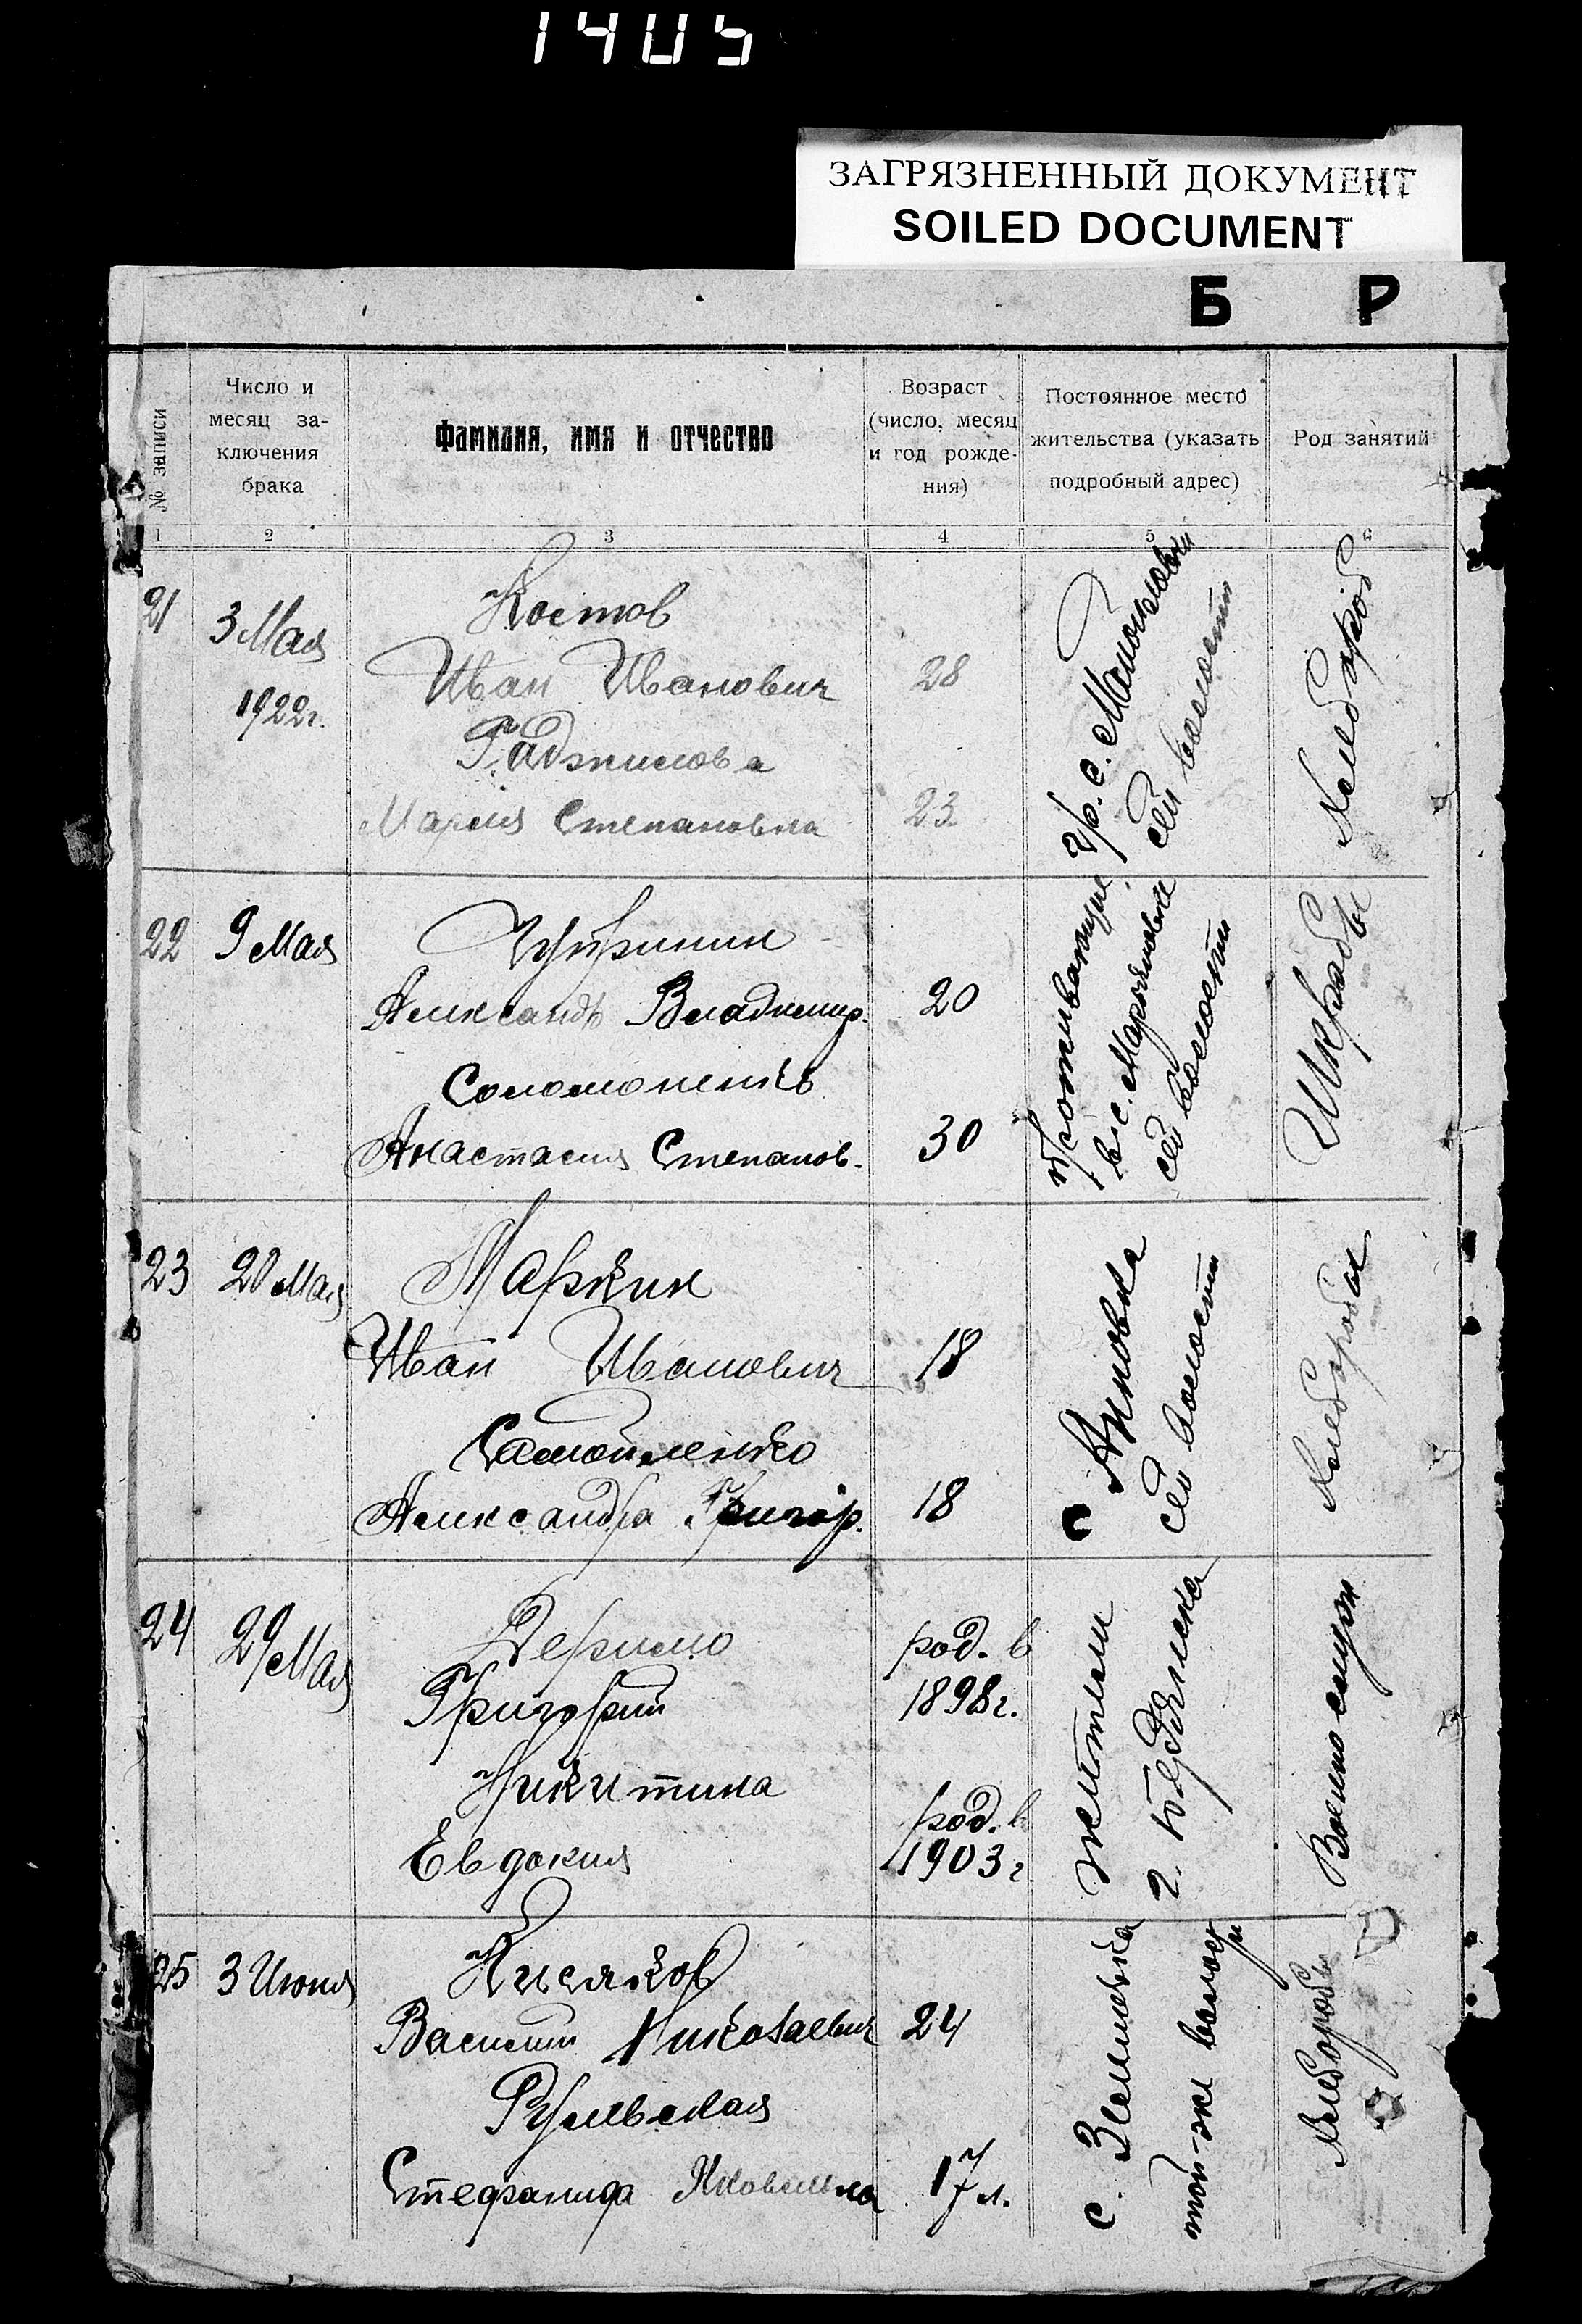 1405
ЗАГРЯЗНЕННЫЙ ДОКУМЕНТ
SOILED DOCUMENT
Б Р
№ записи
Число и
месяц за-
ключения
брака
Фамилия, имя и отчество
Возраст
(число, месяц
и год рожде-
ния)
Постоянное место
жительства (указать
подробный адрес)
Род занятий
1 2 3 4 5 6
21
3 Мая
1922г.
Костов
Иван Иванович
28
Мария Степановна
23
гр. с.
волости
Хлебороб
22
9 Мая
Александр Владимир.
20
Соломоненко
Анастасия Степанов.
30
проживающие
в с.
волости
23
20 Мая
Маркин
Иван Иванович
18
Самойленко
Александра Григор.
18
с
волости
Хлеборобы
24
29 Мая
Григорий
род. в
1898г.
Никитина
Евдокия
род. в
1903г
жители
г.
Военно служ
25
3 Июня
Кисяков
Василий Николаевич
24
Рульская
Стефанида Яковлевна
17 л.
с.
той-же волости
Хлебороб